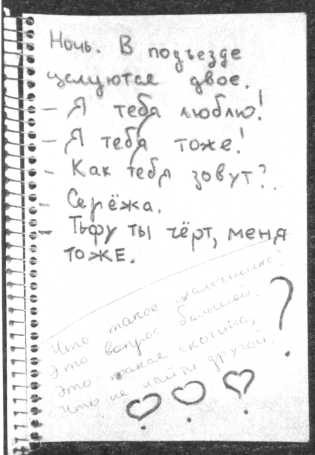 Ночь. В подъезде
целуются двое.
– Я тебя люблю!
– Я тебя тоже!
– Как тебя зовут?
– Серёжа.
– Тьфу ты чёрт, меня
тоже.
Что такое
Это вопрос большой.
Это такая скотина,
Что не найти другой.
?